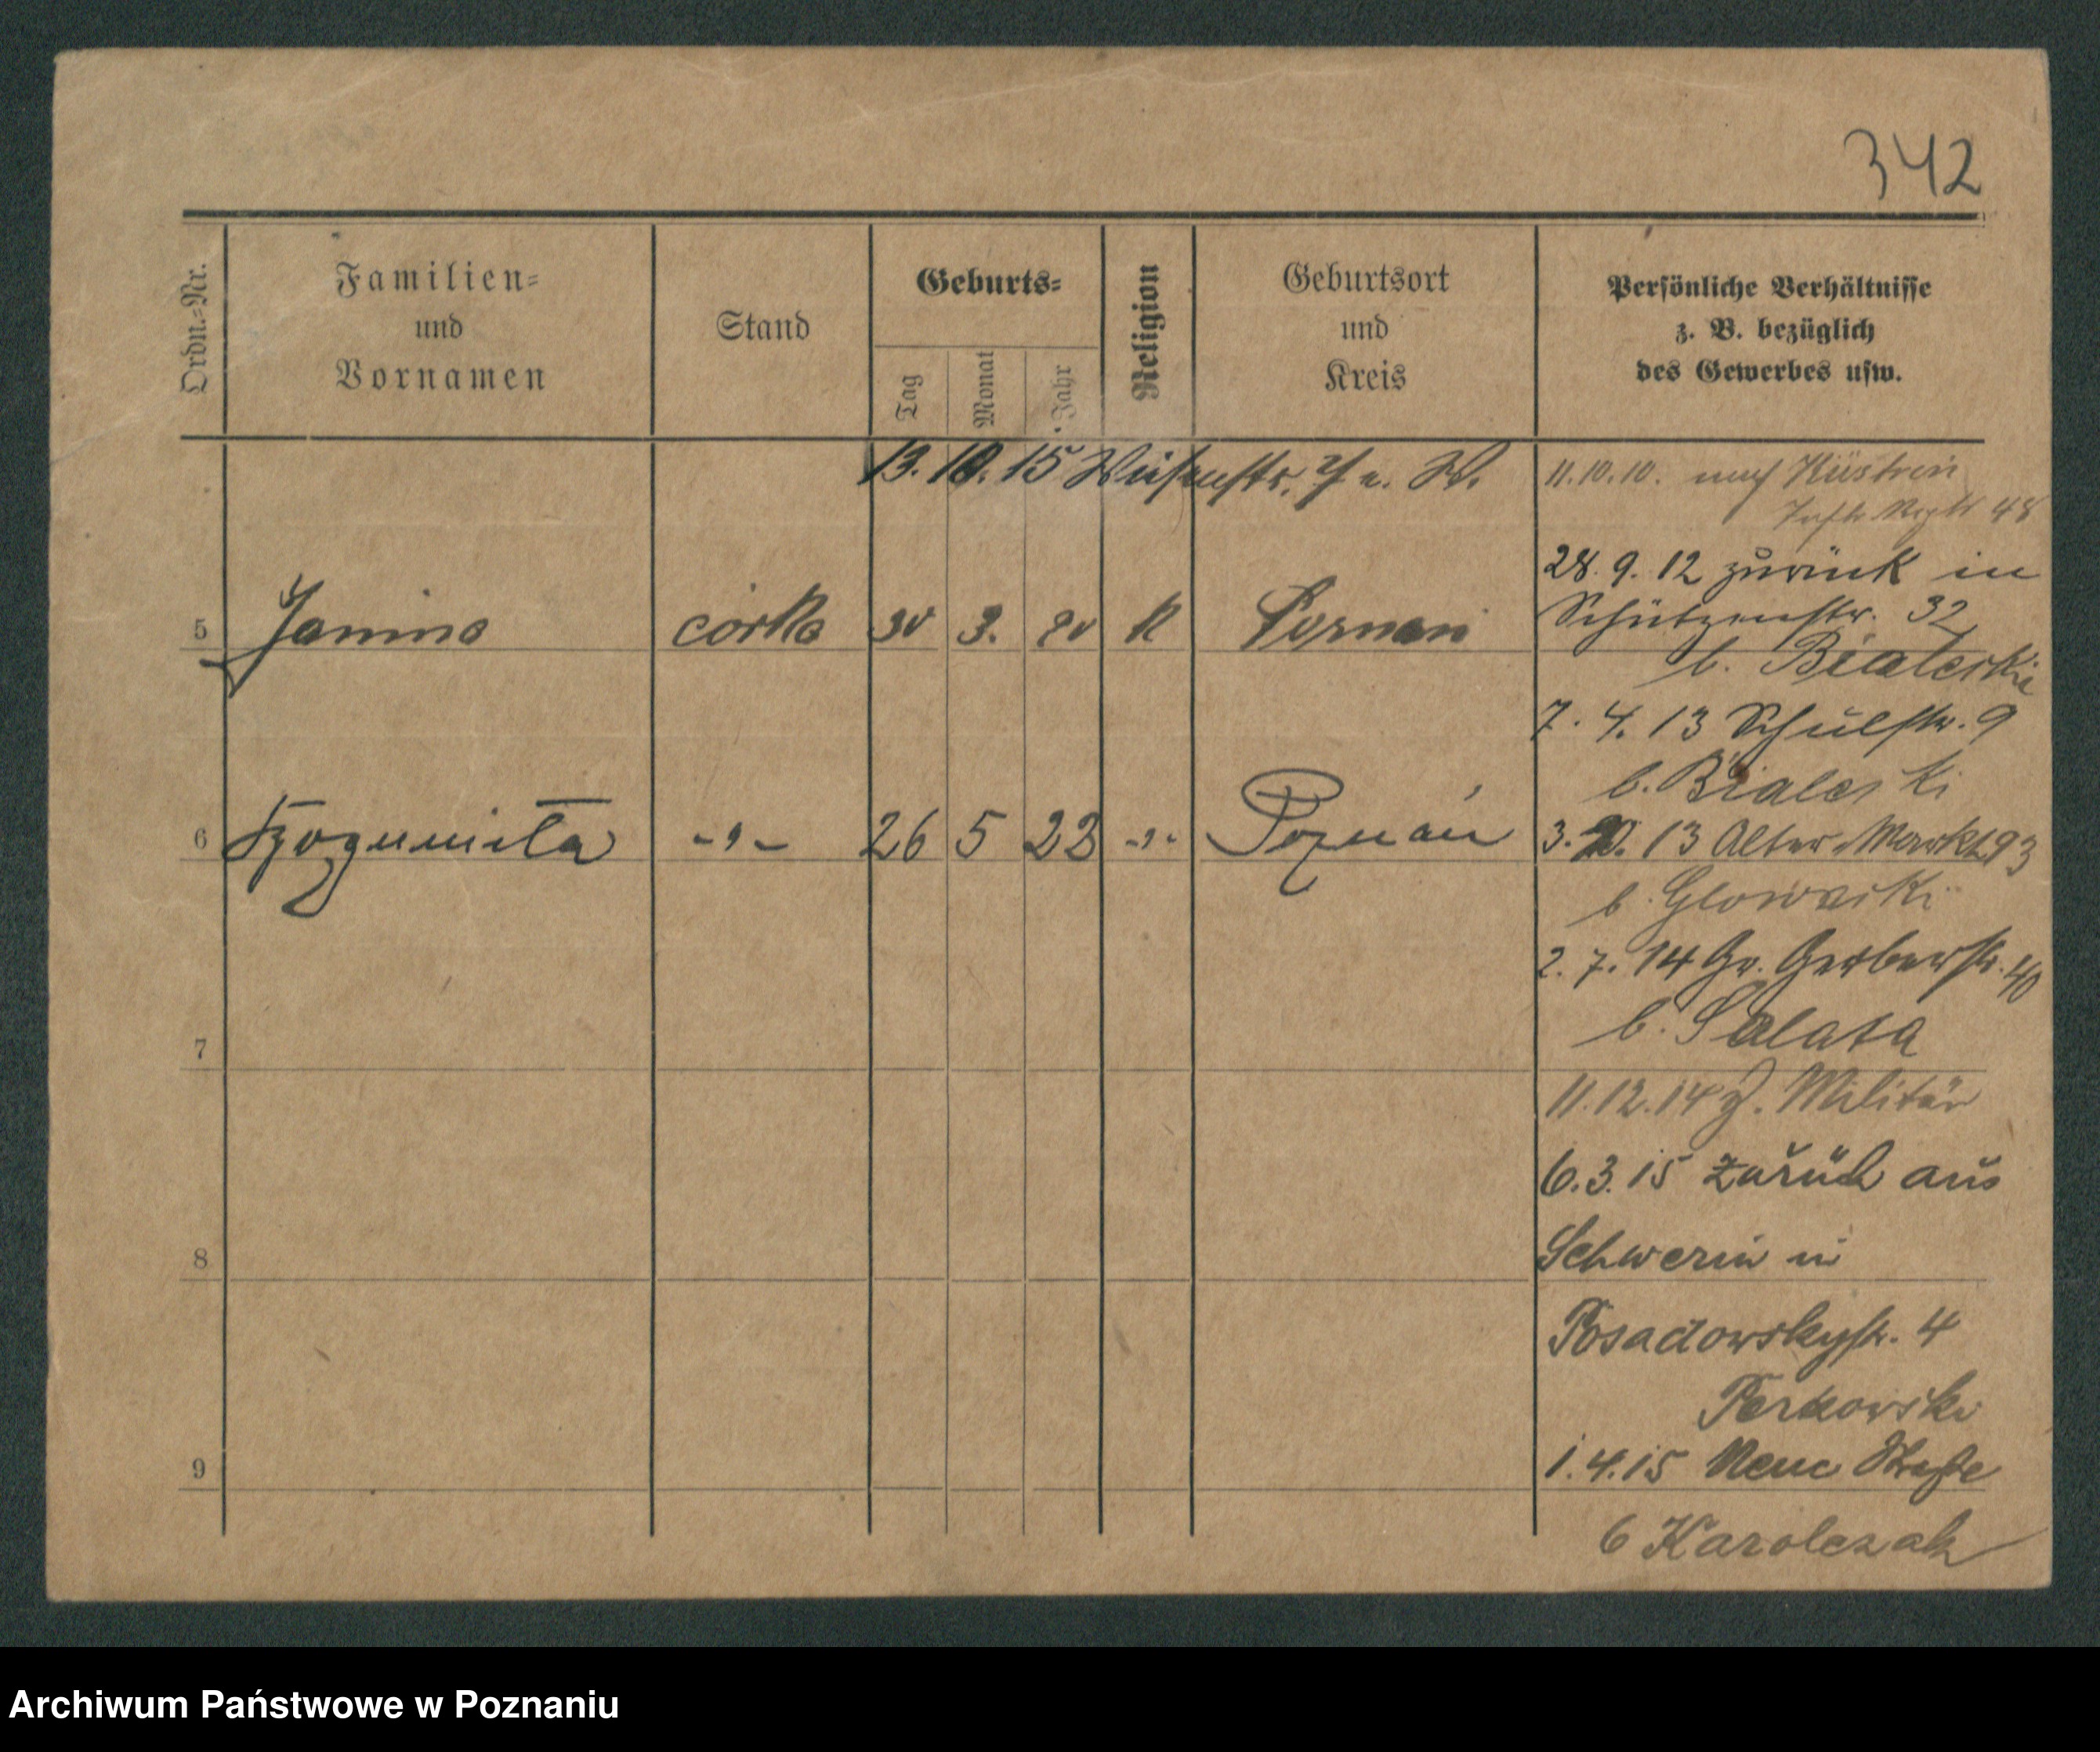 342
Ordn.-Nr.
Familien-
und
Vornamen
Stand
Geburts-
Tag
Monat
Jahr
Religion
Geburtsort
und
Kreis
Persönliche Verhältnisse
z. B. bezüglich
des Gewerbes usw.
13. 10. 15 W.
11.10.10. nach Küstrin
48
28. 9. 12 zurück in
Schützenstr. 32
b. Bialecki
5 Janina córka 30 3. 20 K Poznań
7. 4. 13 Schulstr. 9
b. Bialecki
6 Bogumiła -"- 26 5 22 -"- Poznań
3. 13 Alter Markt 93
b. Glowacki
2. 7. 14 Gr. Gerberstr. 40
b. Salata
7
11.12.14 z. Militär
6.3.15 zurück aus
Schwerin in
8
Posadowskystr. 4
1.4.15 Neue Straße
9
6 Karolczak
Archiwum Państwowe w Poznaniu